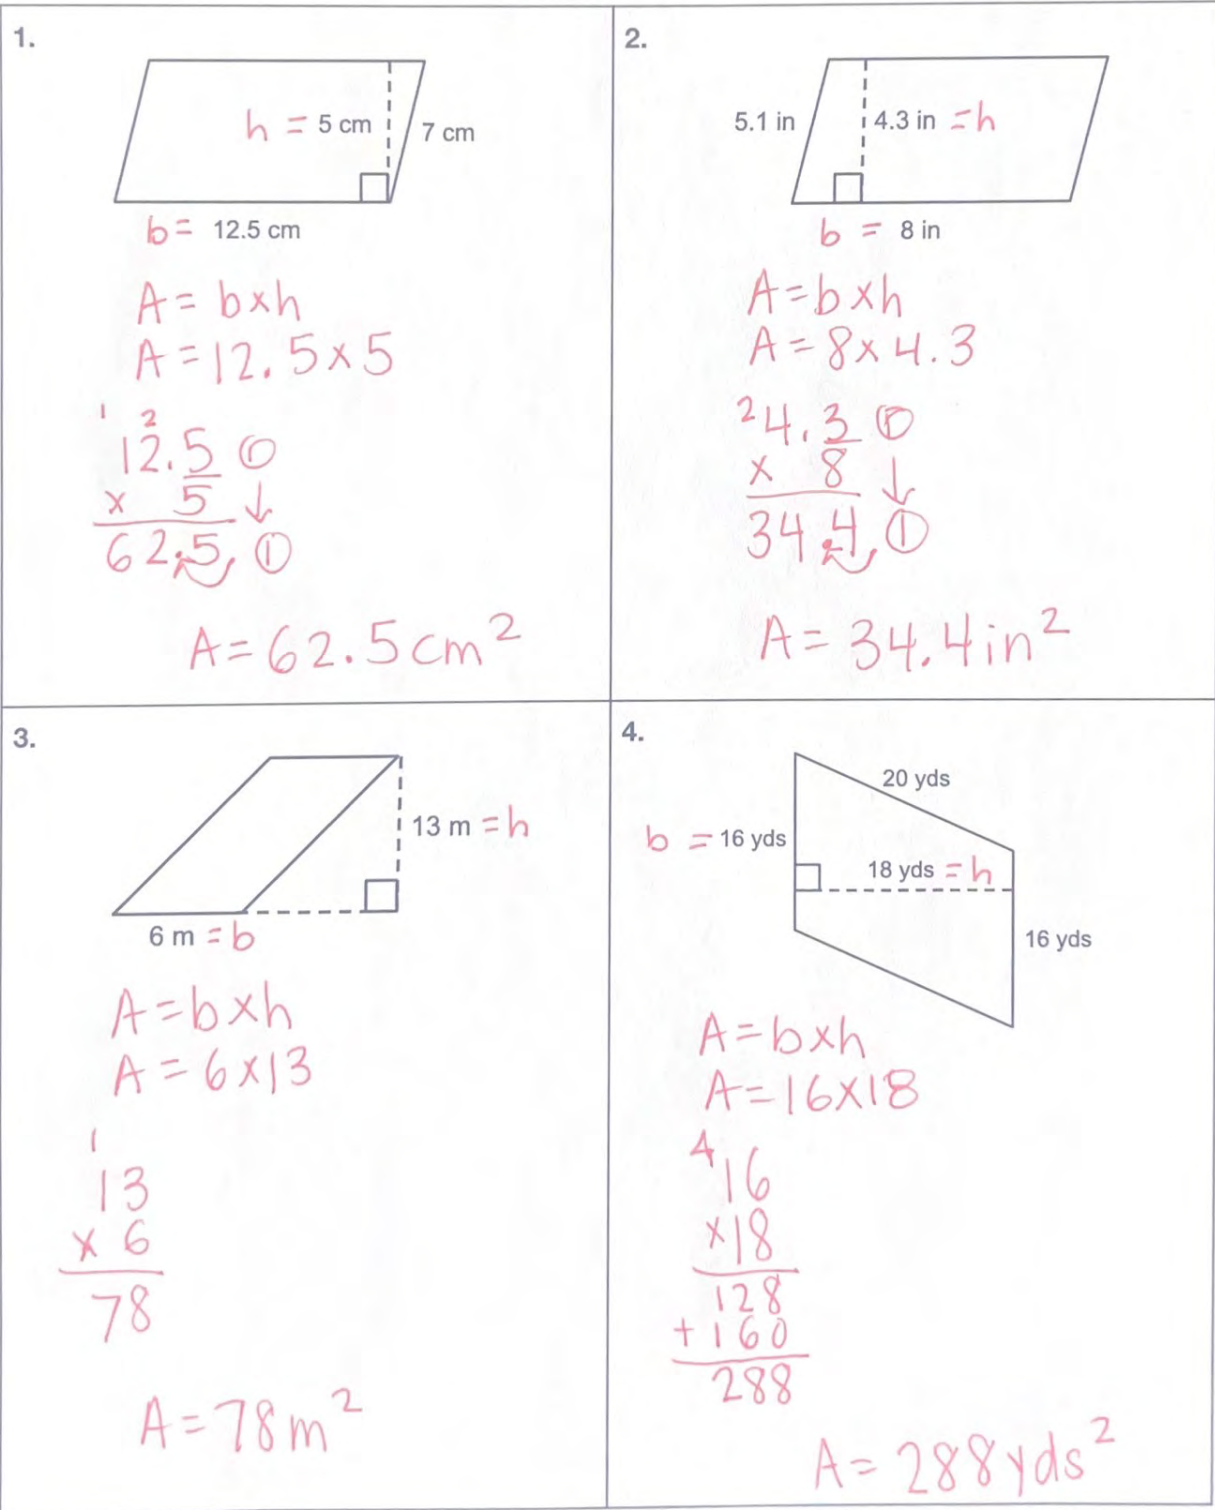 1.
h = 5 cm
7 cm
b = 12.5 cm
A = b x h
A = 12.5 x 5
1 2
12.5 ①
x 5 ↓
62.5. ①
A = 62.5 cm²
2.
5.1 in
4.3 in = h
b = 8 in
A = b x h
A = 8 x 4.3
2
4.3 ①
x 8 ↓
34.4. ①
A = 34.4 in²
3.
13 m = h
6 m = b
A = b x h
A = 6 x 13
1
13
x 6
78
A = 78 m²
4.
20 yds
b = 16 yds
18 yds = h
16 yds
A = b x h
A = 16 x 18
4
16
x 18
128
+ 160
288
A = 288 yds²